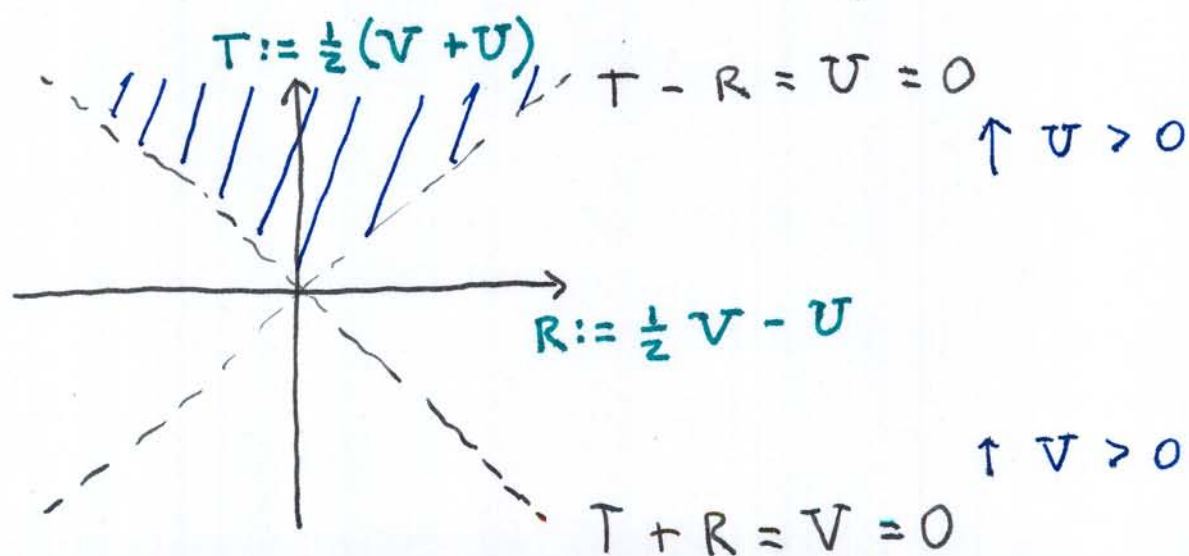 T := ½ (V + U)
T - R = U = 0
↑ U > 0
R := ½ V - U
↑ V > 0
T + R = V = 0